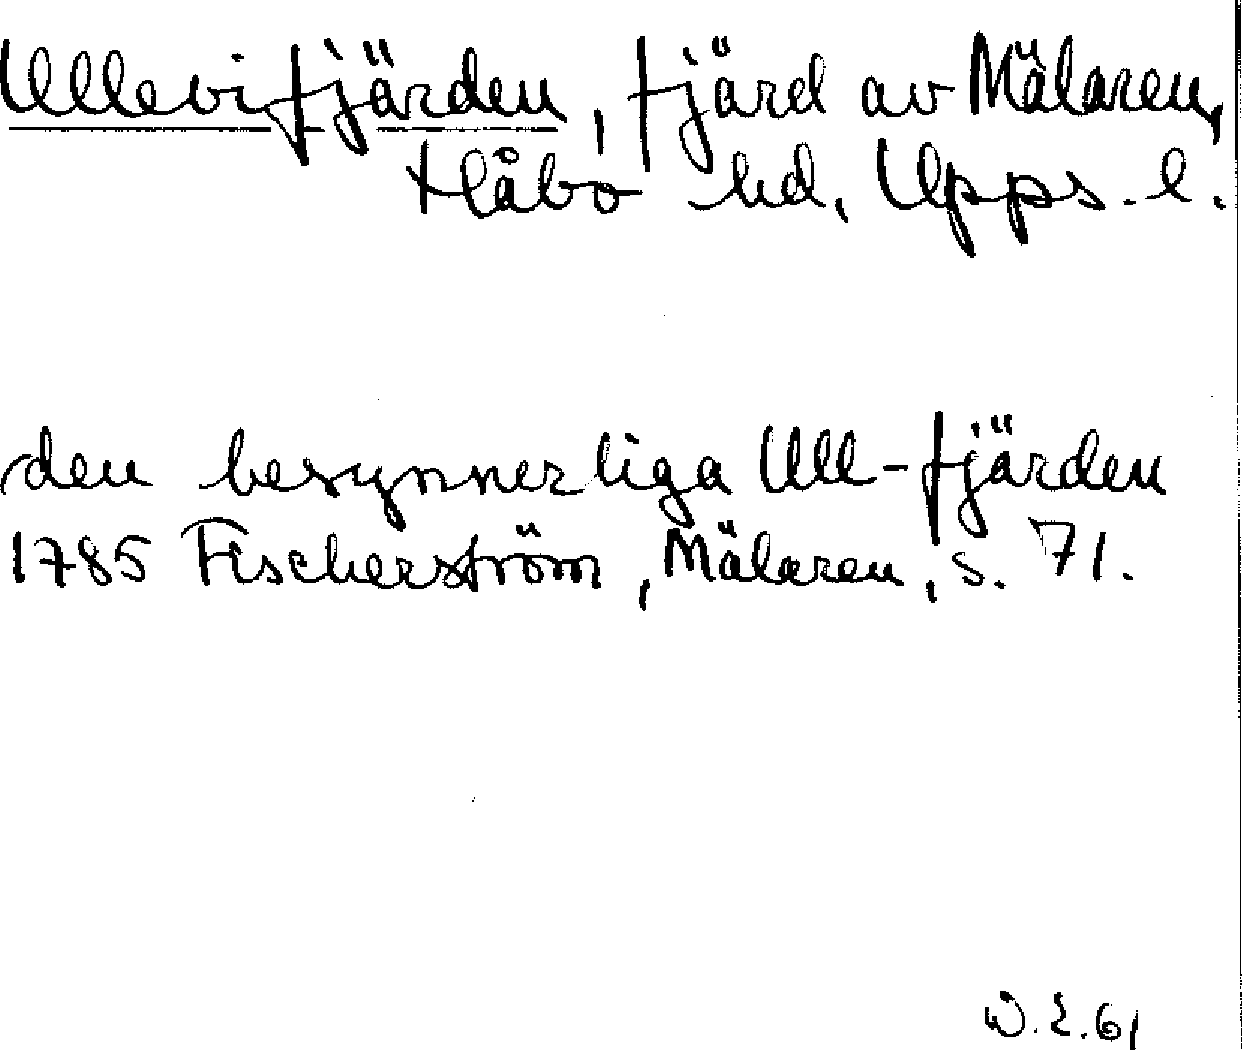 Ullevifjärden, fjärd av Mälaren,
Håbo hd, Upps. l.
den besynnerliga Ull-fjärden
1785 Fischerström, Mälaren, s. 71.